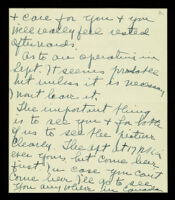 + care for you + you
will really feel rested
afterwards.
As to an operation in
Sept. It seems probable
but unless it is necessary
won't have it.
The important thing
is to see you + for both
of us to see the picture
clearly. The apt at
ever yours, but come here
first. In case you can't
come here I'll go to see
you anywhere in Canada